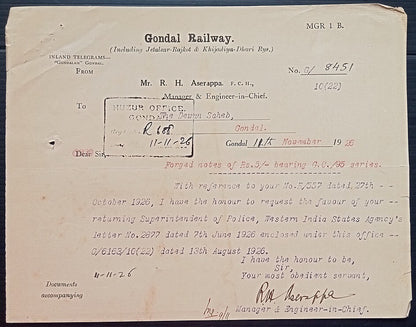 MGR 1 B.
Gondal Railway.
(Including Jetalsar-Rajkot & Khijadiya-Dhari Rys,)
INLAND TELEGRAMS—
"GONDALAN" GONDAL.
FROM
No. G/ 8451
10(22)
Mr. R. H. Aserappa. F. C. H.,
Manager & Engineer-in-Chief.
To
HUZUR OFFICE
GONDAL
R 608
11-11-26
The Dewan Saheb,
Gondal.
Gondal 11th November 1926
Dear Sir,
Forged notes of Rs.5/- bearing G.O./95 series.
With reference to your No.F/337 dated 27th
October 1926, I have the honour to request the favour of your
returning Superintendent of Police, Western India States Agency's
letter No.2677 dated 7th June 1926 enclosed under this office
G/6163/10(22) dated 13th August 1926.
I have the honour to be,
Sir,
Your most obedient servant,
11-11-26
Documents
accompanying
R H Aserappa
Manager & Engineer-in-Chief.